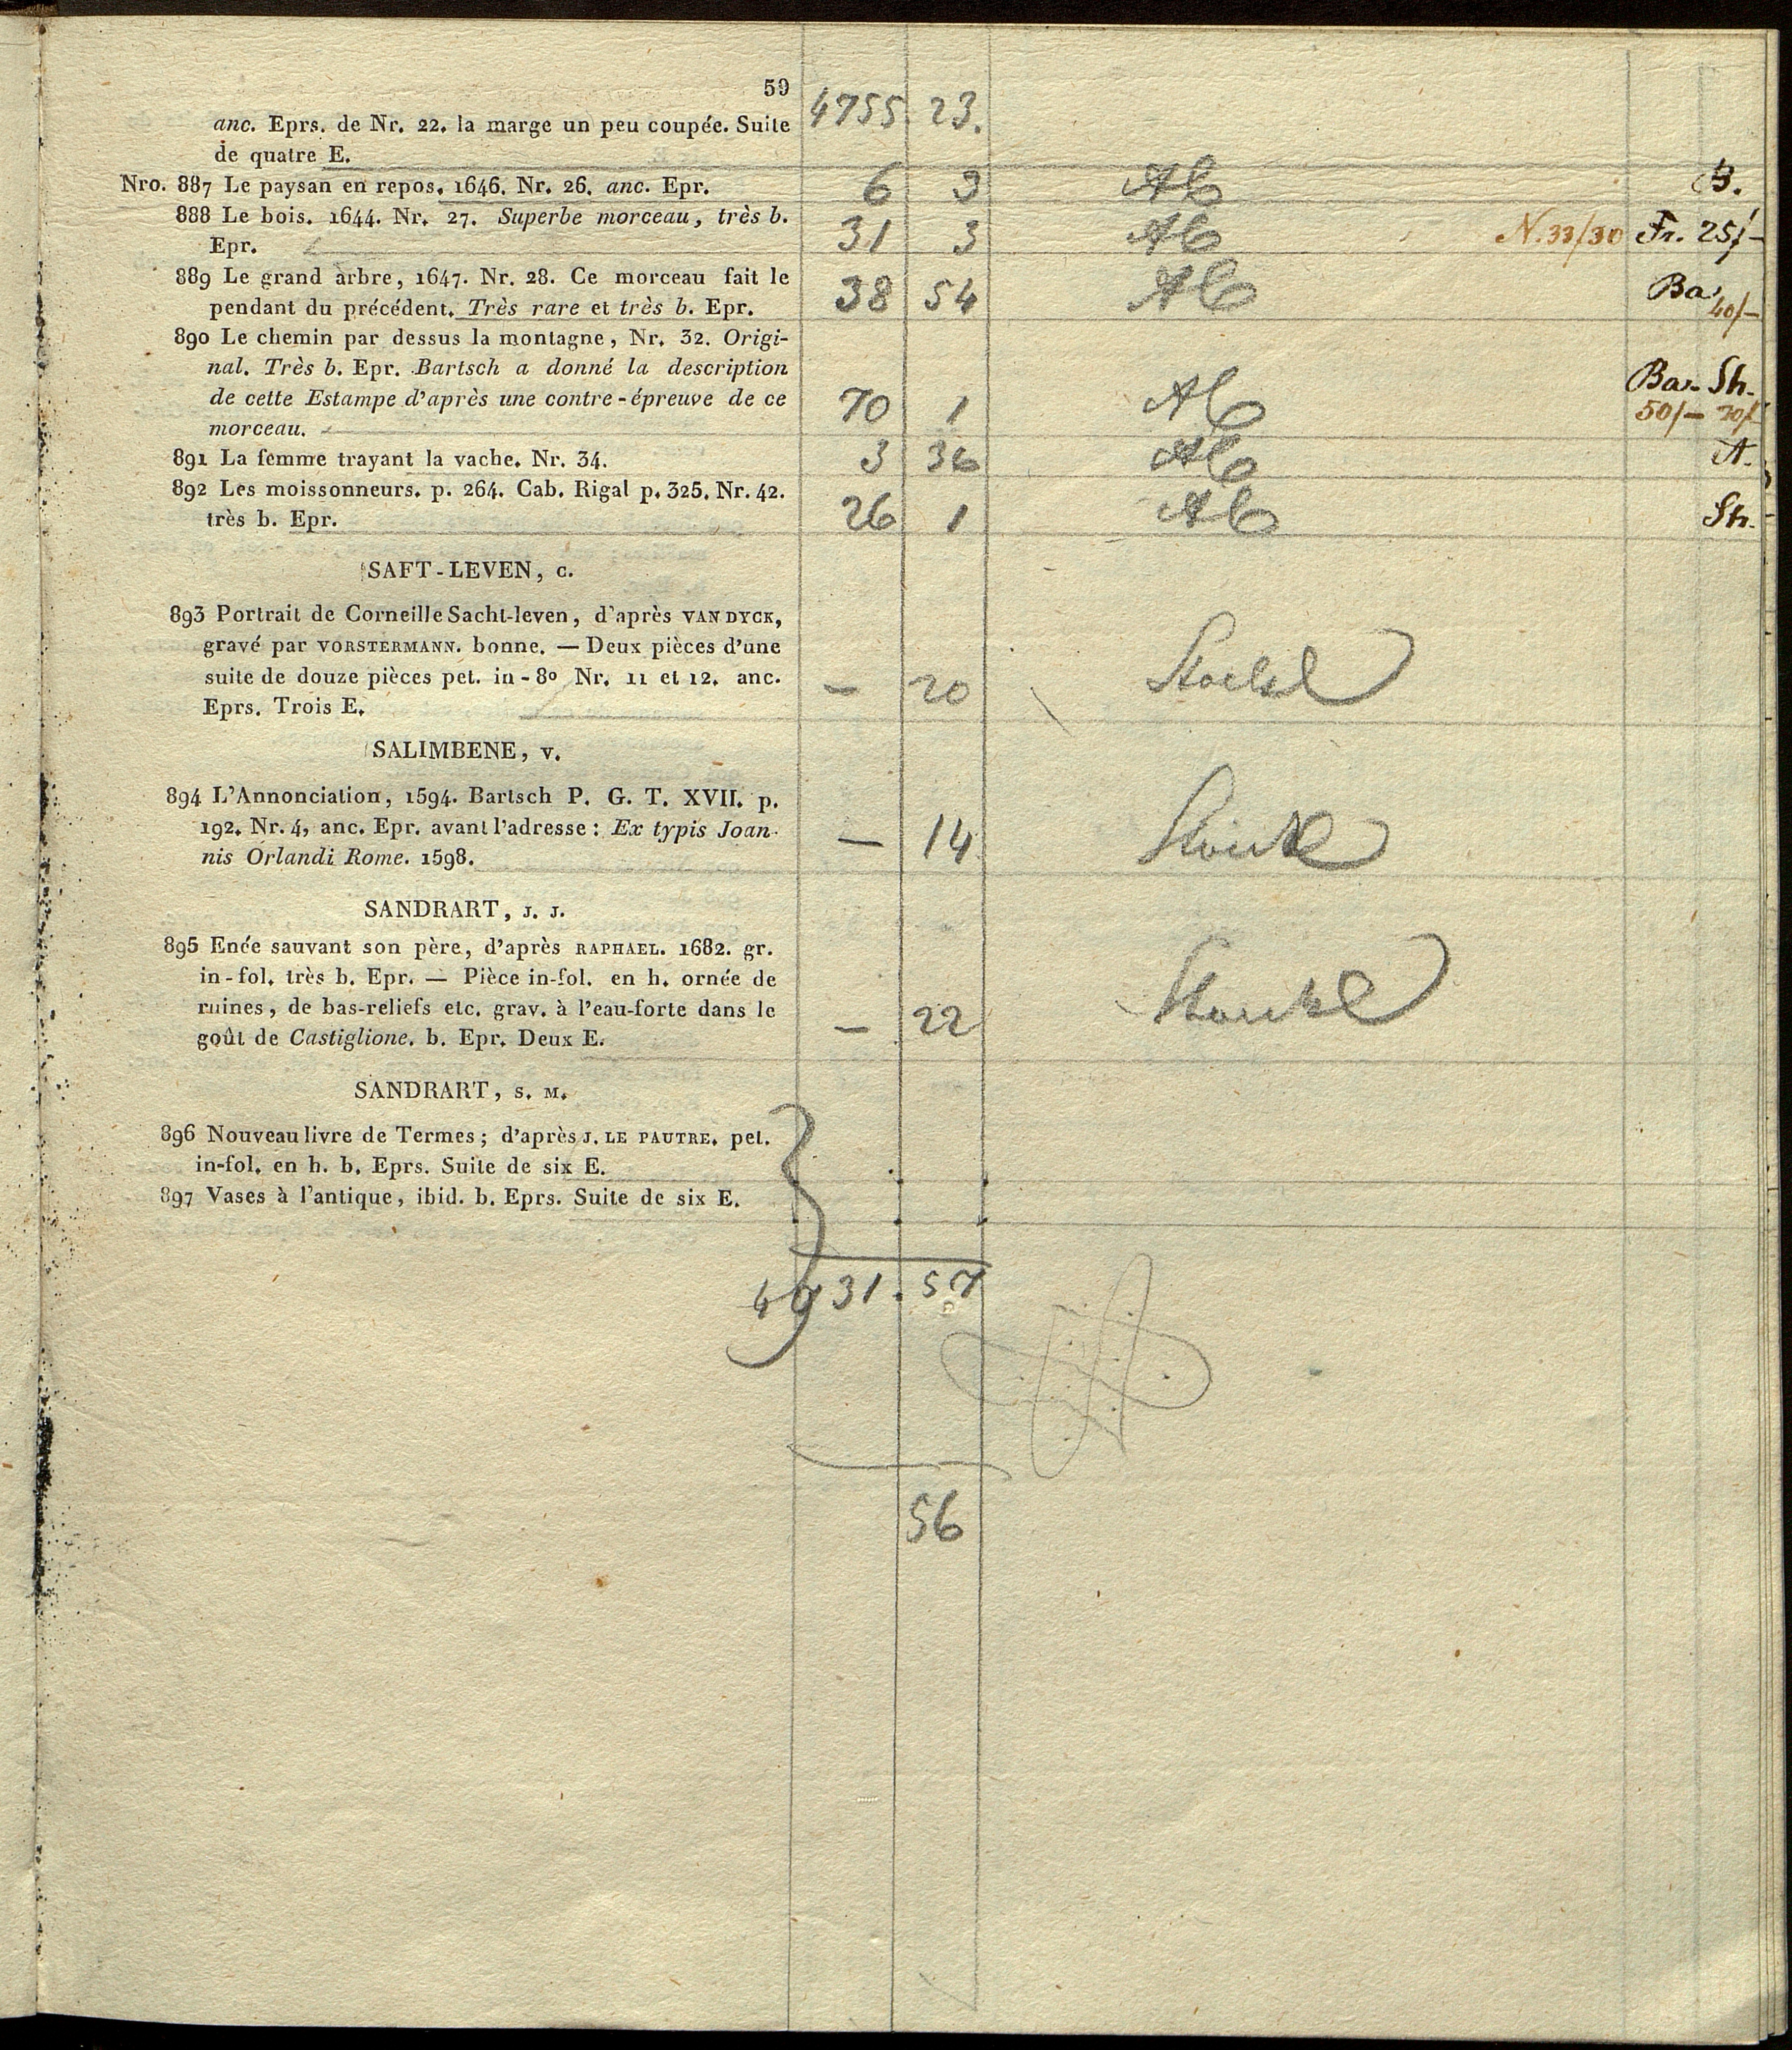 59
4755. 23.
anc. Eprs. de Nr. 22. la marge un peu coupée. Suite
de quatre E.
Nro. 887 Le paysan en repos. 1646. Nr. 26. anc. Epr. 6 3 B.
888 Le bois. 1644. Nr. 27. Superbe morceau, très b.
Epr. 31 3 N. 33/30 Fr. 25/-
889 Le grand arbre, 1647. Nr. 28. Ce morceau fait le
pendant du précédent. Très rare et très b. Epr. 38 54 Ba. 40/-
890 Le chemin par dessus la montagne, Nr. 32. Origi-
nal. Très b. Epr. Bartsch a donné la description
de cette Estampe d'après une contre-épreuve de ce 70 1 Ba. Sh.
morceau. 50/-
891 La femme trayant la vache. Nr. 34. 3 36 A.
892 Les moissonneurs. p. 264. Cab. Rigal p. 325. Nr. 42.
très b. Epr. 26 1 Sh.
SAFT-LEVEN, C.
893 Portrait de Corneille Sacht-leven, d'après VAN DYCK,
gravé par VORSTERMANN. bonne. — Deux pièces d'une
suite de douze pièces pet. in-8o Nr. 11 et 12. anc. — 20
Eprs. Trois E.
SALIMBENE, V.
894 L'Annonciation, 1594. Bartsch P. G. T. XVII. p.
192. Nr. 4, anc. Epr. avant l'adresse: Ex typis Joan-
nis Orlandi Rome. 1598. — 14
SANDRART, J. J.
895 Enée sauvant son père, d'après RAPHAEL. 1682. gr.
in-fol. très b. Epr. — Pièce in-fol. en h. ornée de
ruines, de bas-reliefs etc. grav. à l'eau-forte dans le
goût de Castiglione. b. Epr. Deux E. — 22
SANDRART, S. M.
896 Nouveau livre de Termes; d'après J. LE PAUTRE. pet.
in-fol. en h. b. Eprs. Suite de six E.
897 Vases à l'antique, ibid. b. Eprs. Suite de six E.
4931. 57
56